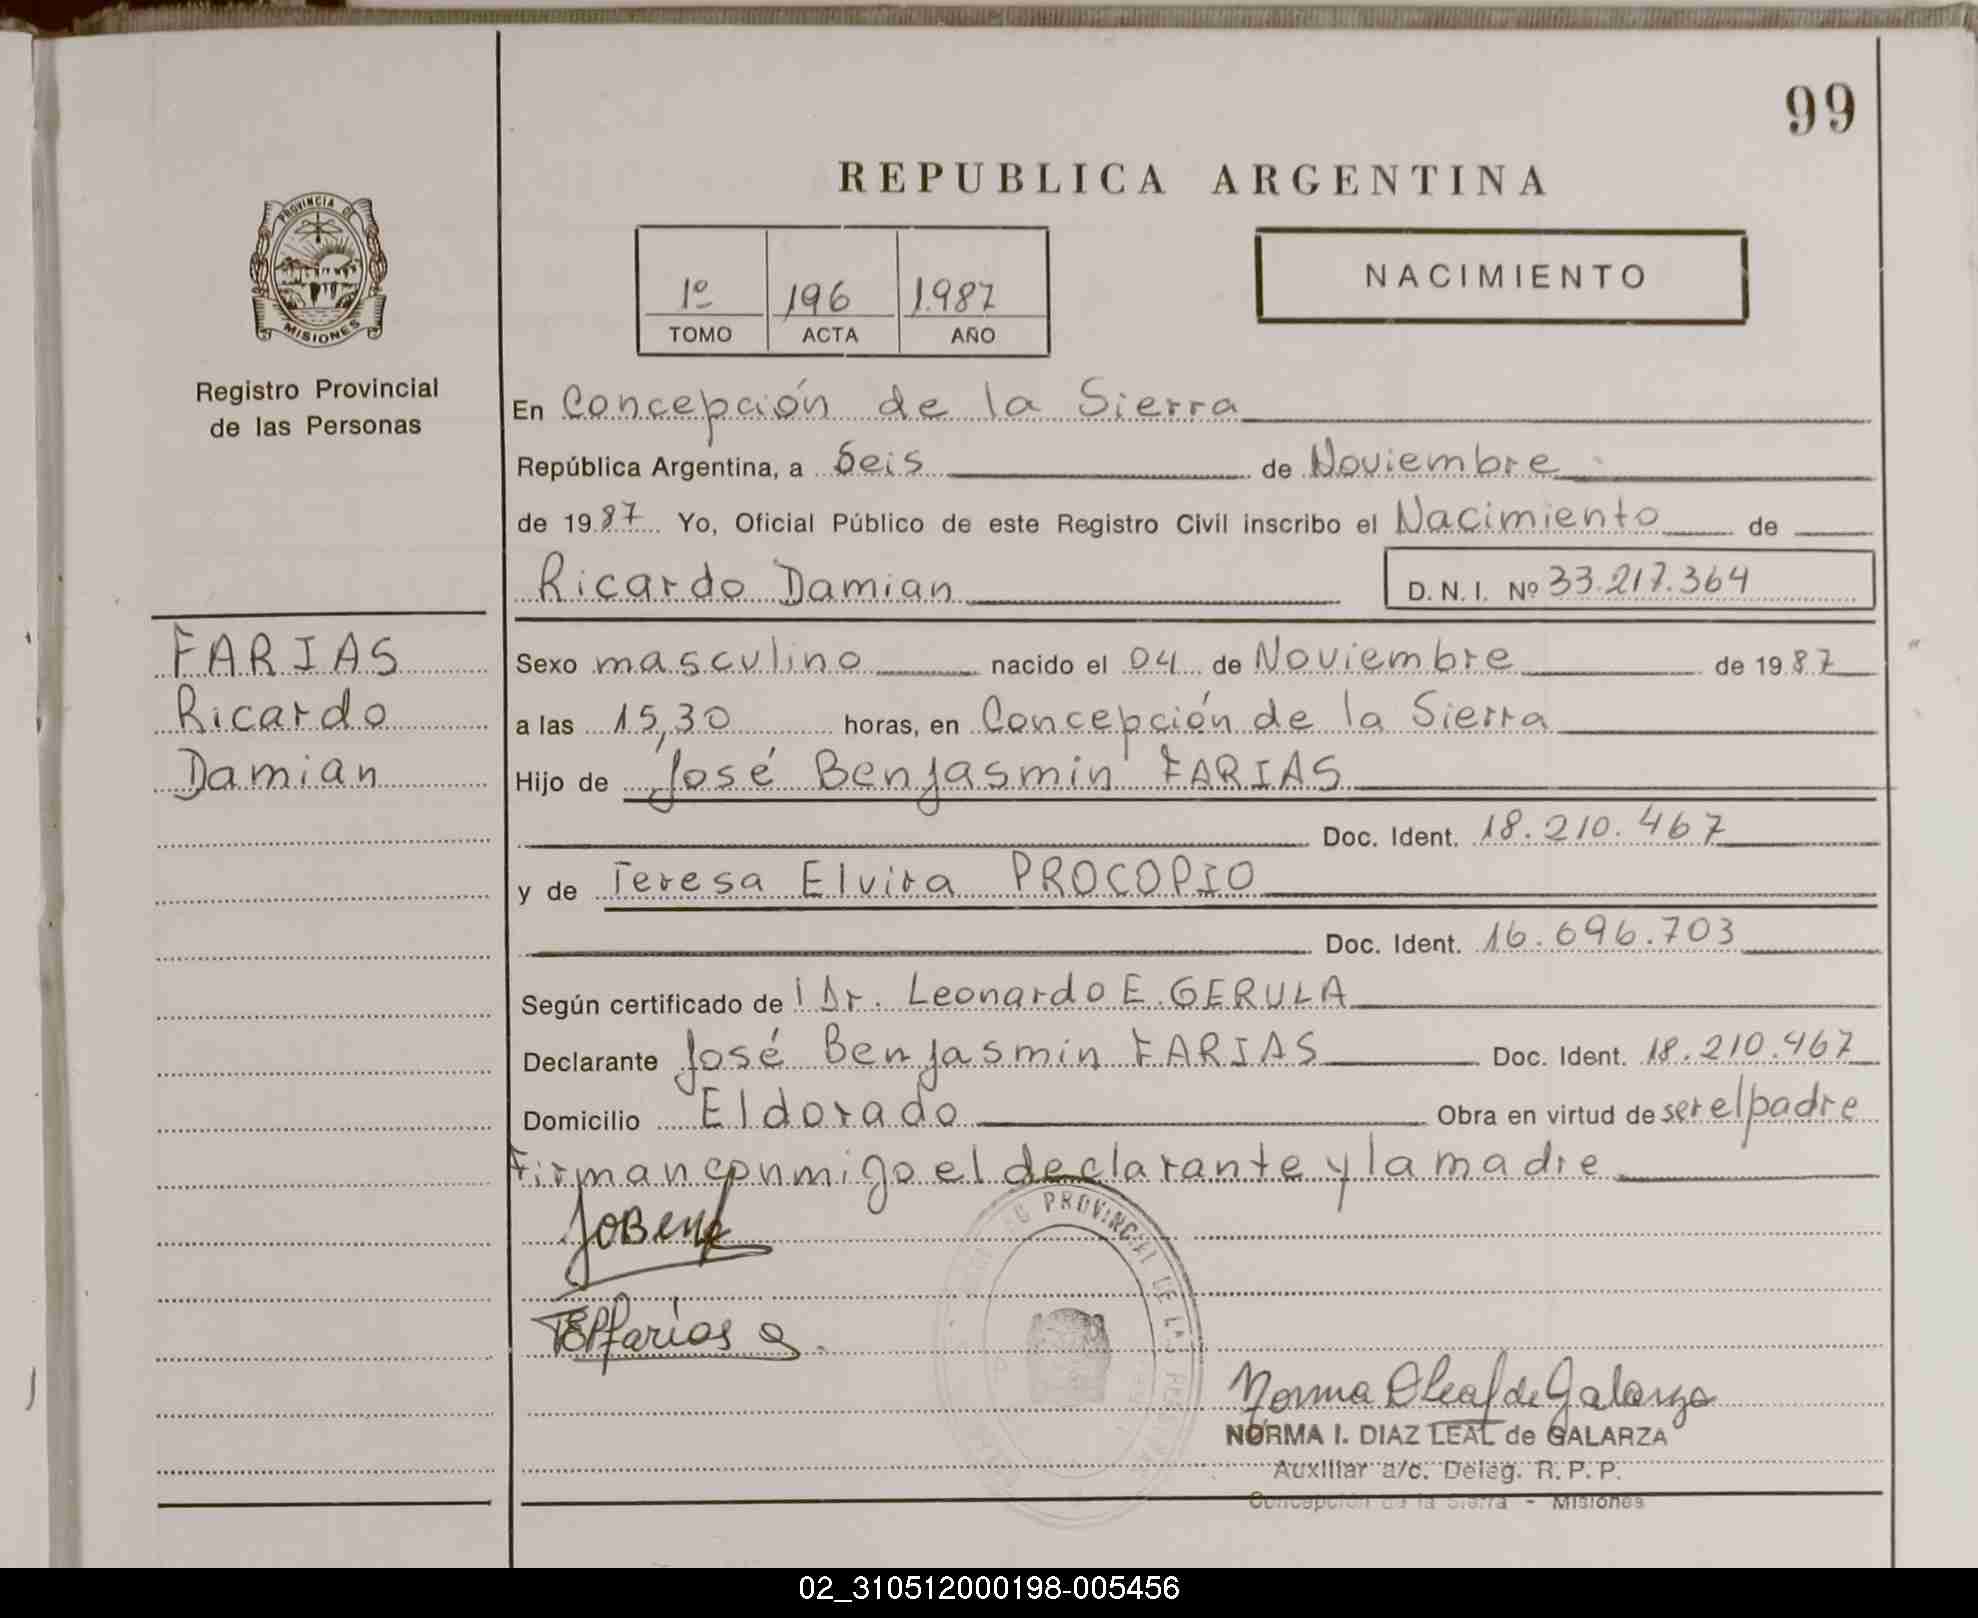 99
REPUBLICA ARGENTINA
PROVINCIA DE
MISIONES
Registro Provincial
de las Personas
1º 196 1.987
TOMO ACTA AÑO
NACIMIENTO
En Concepción de la Sierra
República Argentina, a Seis de Noviembre
de 1987 Yo, Oficial Público de este Registro Civil inscribo el Nacimiento de
Ricardo Damian D.N.I. Nº 33.217.364
FARIAS
Ricardo
Damián
Sexo masculino nacido el 04 de Noviembre de 1987
a las 15,30 horas, en Concepción de la Sierra
Hijo de José Benjasmin FARIAS
Doc. Ident. 18.210.467
y de Teresa Elvira PROCOPIO
Doc. Ident. 16.696.703
Según certificado de l Dr. Leonardo E. GERULA
Declarante José Benjasmin FARIAS Doc. Ident. 18.210.467
Domicilio Eldorado Obra en virtud de ser el padre
Firman conmigo el declarante y la madre
PROVINCIAL DE LAS
Norma Leal de Galarza
NORMA I. DIAZ LEAL de GALARZA
Auxiliar a/c. Deleg. R. P. P.
Concepción de la Sierra - Misiones
02_310512000198-005456